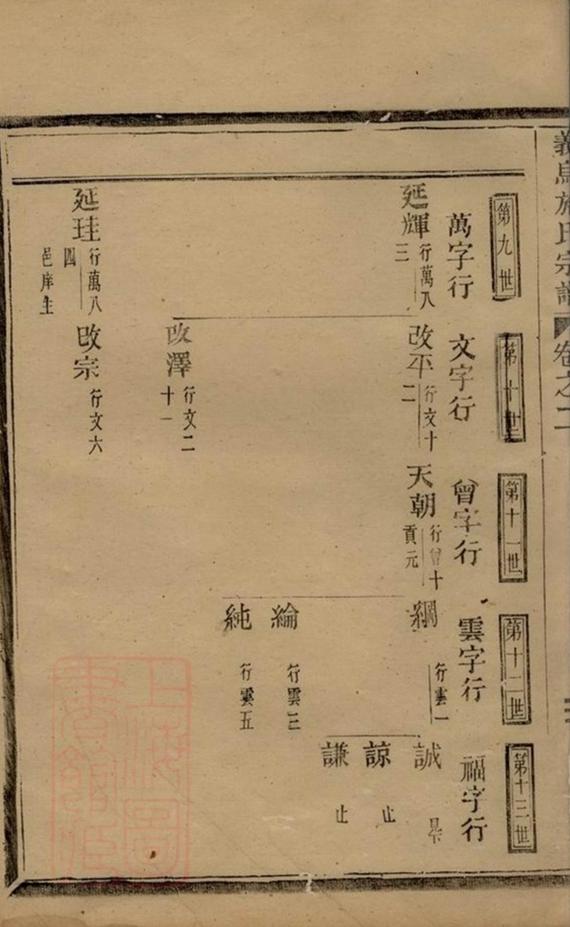 義烏施氏宗譜 卷之二
第九世
第十世
第十一世
第十二世
第十三世
萬字行
文字行
曾字行
雲字行
福字行
延輝 行萬八
三
改平 行文十
二
天朝 行曾十
貢元
綱 行雲一
誠
諒 止
謙 止
綸 行雲三
純 行雲五
改澤 行文二
十一
延珪 行萬八
四
邑庠生
改宗 行文六
上海圖
書館藏